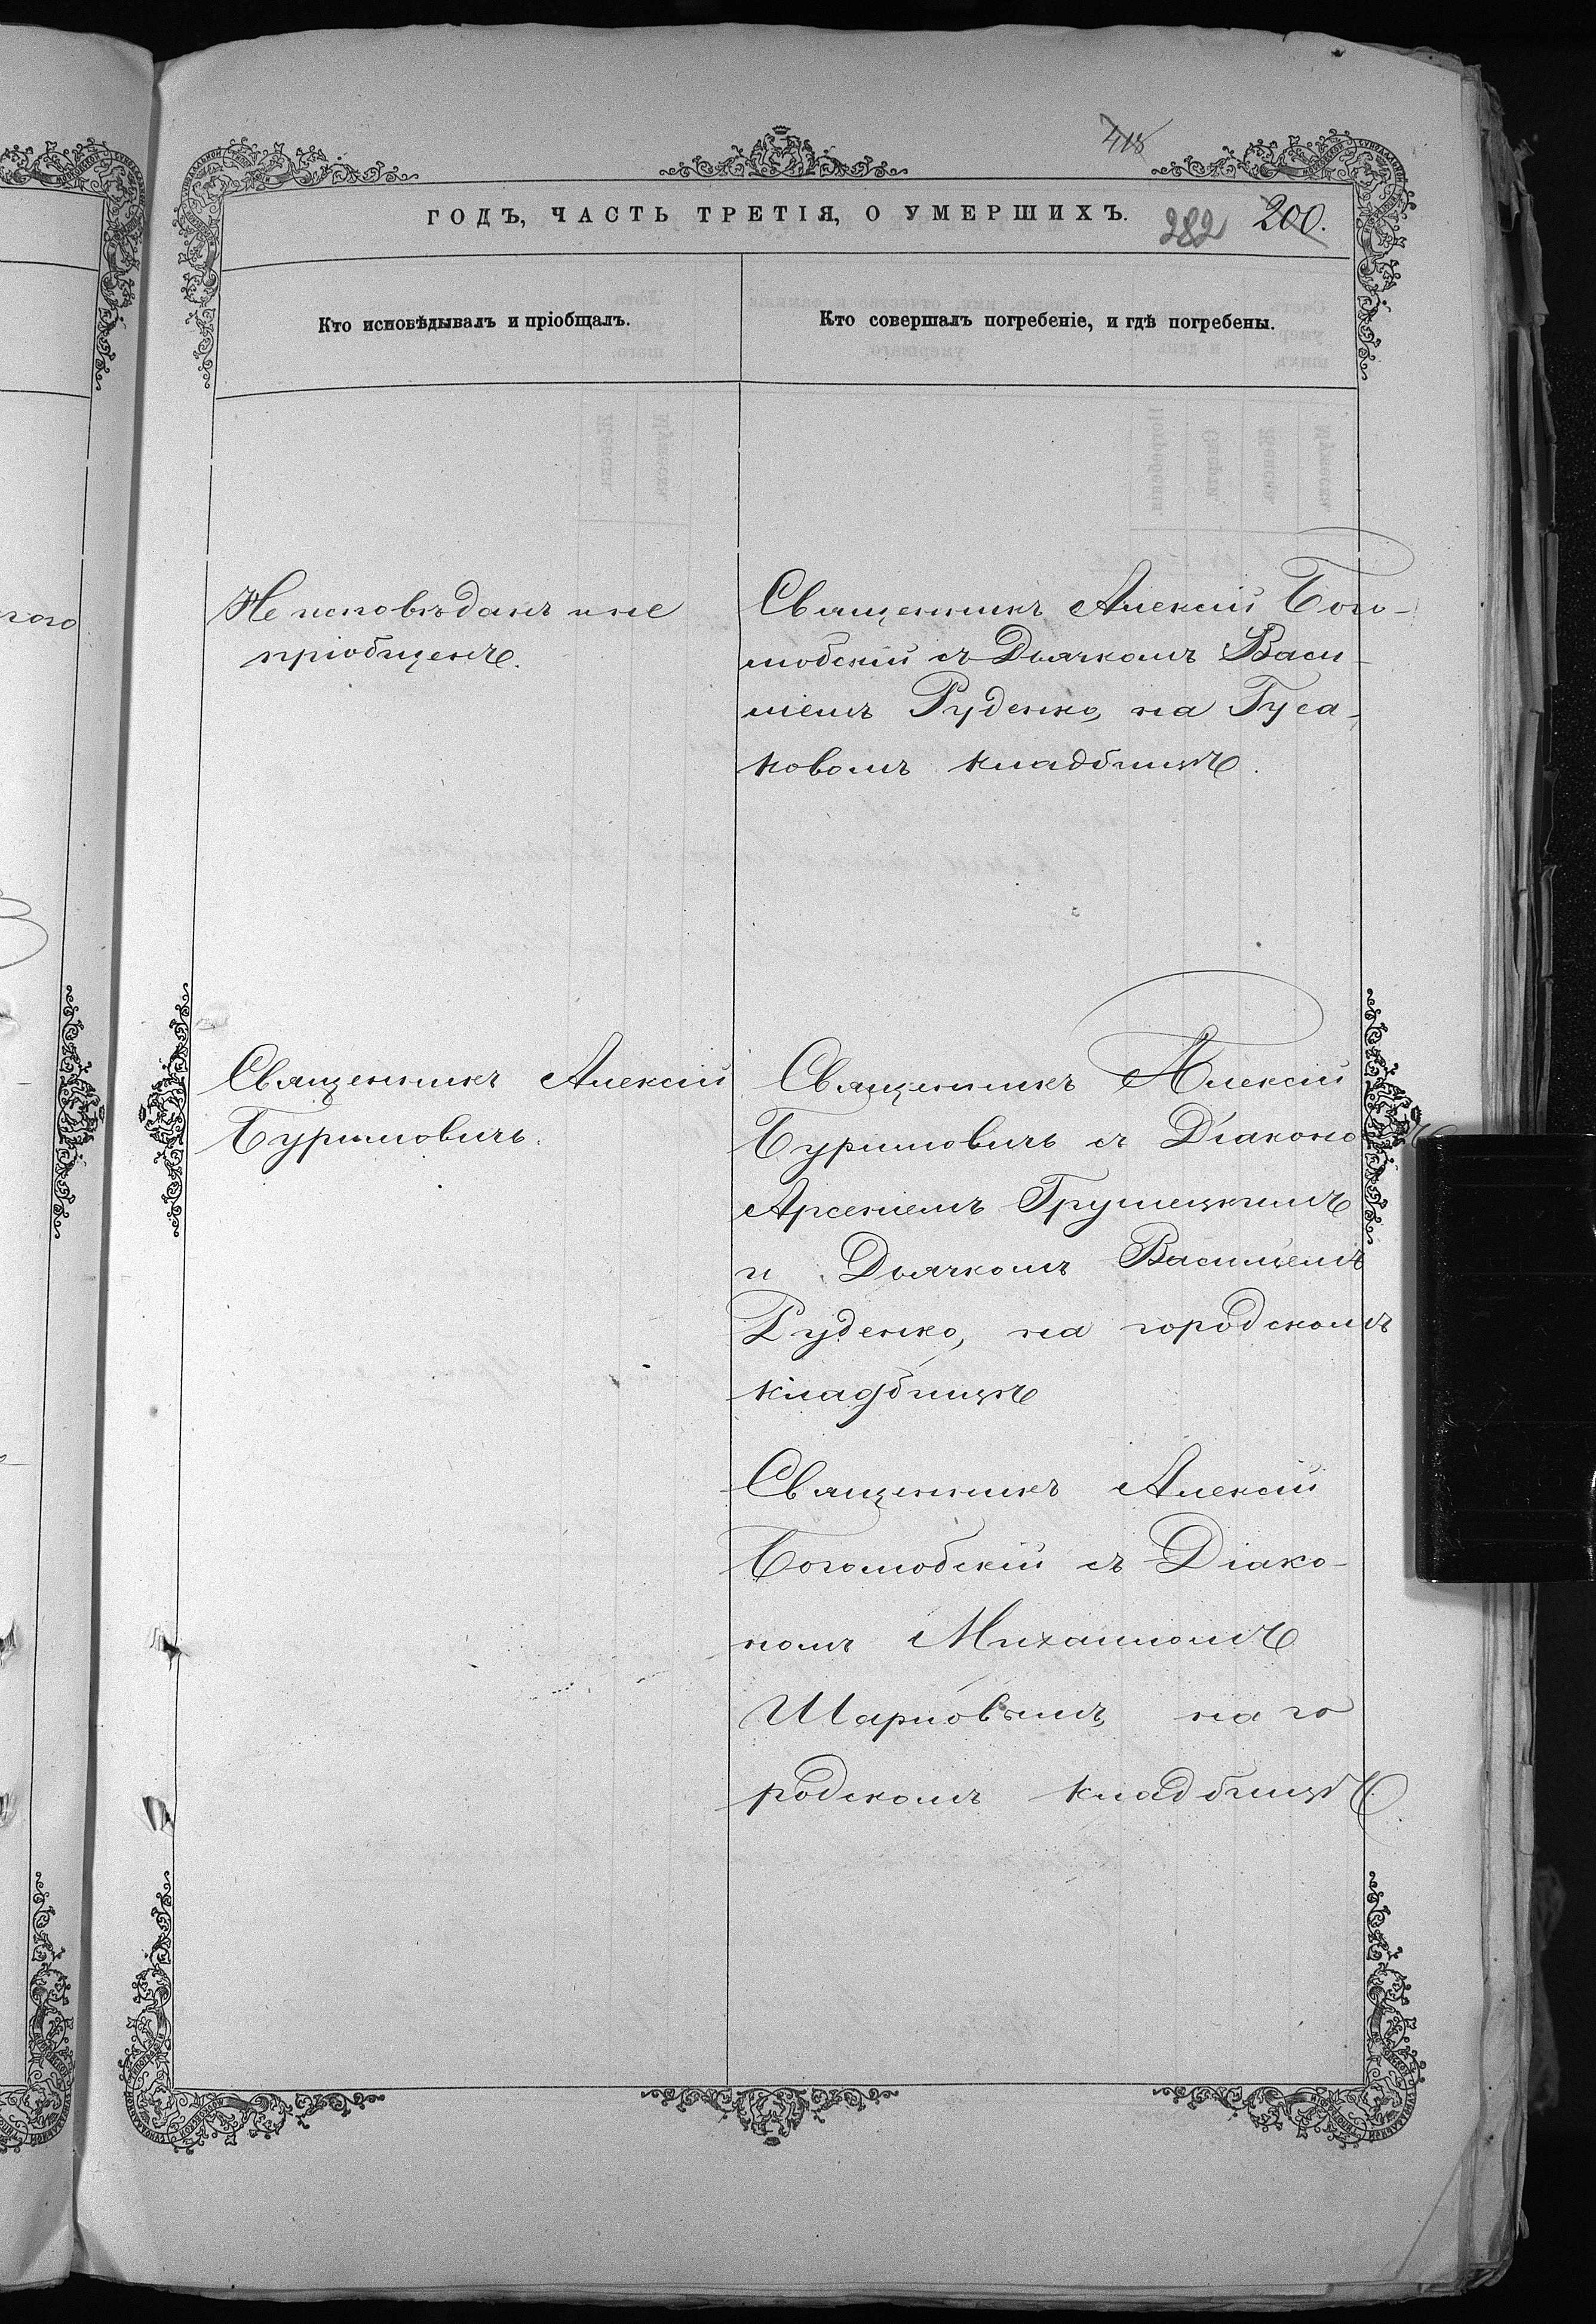 418
ГОДЪ, ЧАСТЬ ТРЕТІЯ, О УМЕРШИХЪ.
282 200.
Кто исповѣдывалъ и пріобщалъ.
Кто совершалъ погребеніе, и гдѣ погребены.
Не исповѣданъ и не
пріобщенъ.
Священникъ Алексій Бого-
любскій съ Дьячкомъ Васи-
ліемъ Руденко, на Гуса-
ковомъ кладбищѣ.
Священникъ Алексій
Буримовичъ.
Священникъ Алексій
Буримовичъ съ Діакономъ
Арсеніемъ Грушецкимъ
и Дьячкомъ Василіемъ
Руденко, на городскомъ
кладбищѣ
Священникъ Алексій
Боголюбскій съ Діако-
номъ Михаиломъ
Шарповымъ, на го
родскомъ кладбищѣ